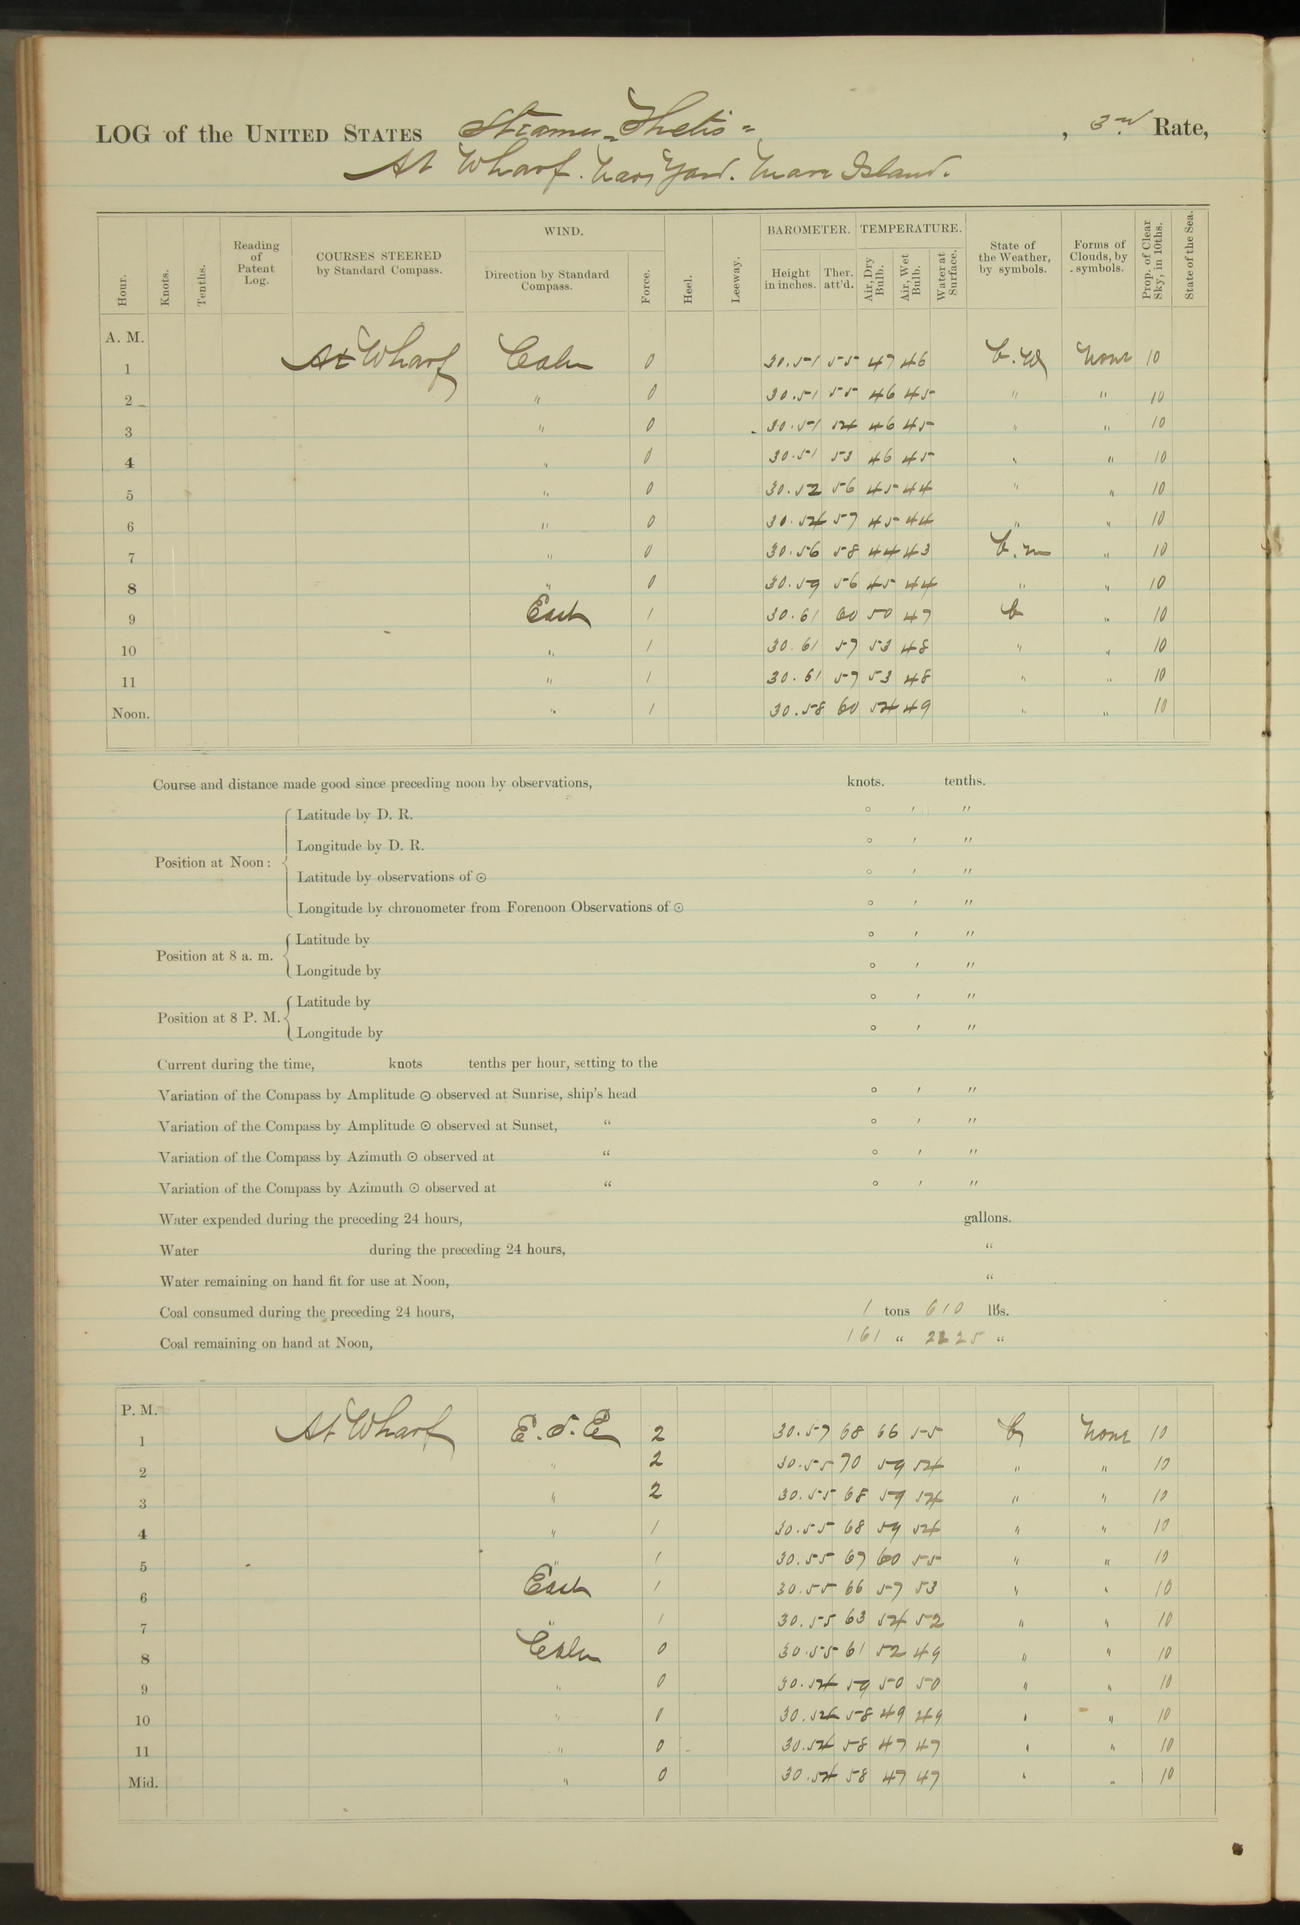 LOG of the UNITED STATES Steamer "Thetis", 3rd Rate,
At Wharf. Navy Yard. Mare Island.
Hour. Knots. Tenths. Reading of Patent Log. COURSES STEERED by Standard Compass. WIND. Direction by Standard Compass. Force. Heel. Leeway. BAROMETER. Height in inches. Ther. att'd. TEMPERATURE. Air, Dry Bulb. Air, Wet Bulb. Water at Surface. State of the Weather, by symbols. Forms of Clouds, by symbols. Prop. of Clear Sky, in 10ths. State of the Sea.
A. M.
1 At Wharf Calm 0 30.51 55 47 46 None 10
2 " 0 30.51 55 46 45 " " 10
3 " 0 30.51 54 46 45 " " 10
4 " 0 30.51 53 46 45 " " 10
5 " 0 30.52 56 45 44 " " 10
6 " 0 30.54 57 45 44 " " 10
7 " 0 30.56 58 44 43 b.m " 10
8 " 0 30.59 56 45 44 " " 10
9 East 1 30.61 60 50 47 b " 10
10 " 1 30.61 57 53 48 " " 10
11 " 1 30.61 57 53 48 " " 10
Noon. " 1 30.58 60 54 49 " " 10
Course and distance made good since preceding noon by observations, knots. tenths.
Position at Noon:
Latitude by D. R. ° ′ ″
Longitude by D. R. ° ′ ″
Latitude by observations of ☉ ° ′ ″
Longitude by chronometer from Forenoon Observations of ☉ ° ′ ″
Position at 8 a. m.
Latitude by ° ′ ″
Longitude by ° ′ ″
Position at 8 P. M.
Latitude by ° ′ ″
Longitude by ° ′ ″
Current during the time, knots tenths per hour, setting to the
Variation of the Compass by Amplitude ☉ observed at Sunrise, ship's head ° ′ ″
Variation of the Compass by Amplitude ☉ observed at Sunset, " ° ′ ″
Variation of the Compass by Azimuth ☉ observed at " ° ′ ″
Variation of the Compass by Azimuth ☉ observed at " ° ′ ″
Water expended during the preceding 24 hours, gallons.
Water during the preceding 24 hours, "
Water remaining on hand fit for use at Noon, "
Coal consumed during the preceding 24 hours, 1 tons 610 lbs.
Coal remaining on hand at Noon, 161 " "
P. M.
1 At Wharf E.S.E 2 30.57 68 66 55 b None 10
2 " 2 30.55 70 59 54 " " 10
3 " 2 30.55 68 59 54 " " 10
4 " 1 30.55 68 59 54 " " 10
5 " 1 30.55 67 60 55 " " 10
6 East 1 30.55 66 57 53 " " 10
7 " 1 30.55 63 54 52 " " 10
8 Calm 0 30.55 61 52 49 " " 10
9 " 0 30.54 59 50 50 " " 10
10 " 0 30.54 58 49 49 " " 10
11 " 0 30.54 58 47 47 " " 10
Mid. " 0 30.54 58 47 47 " " 10